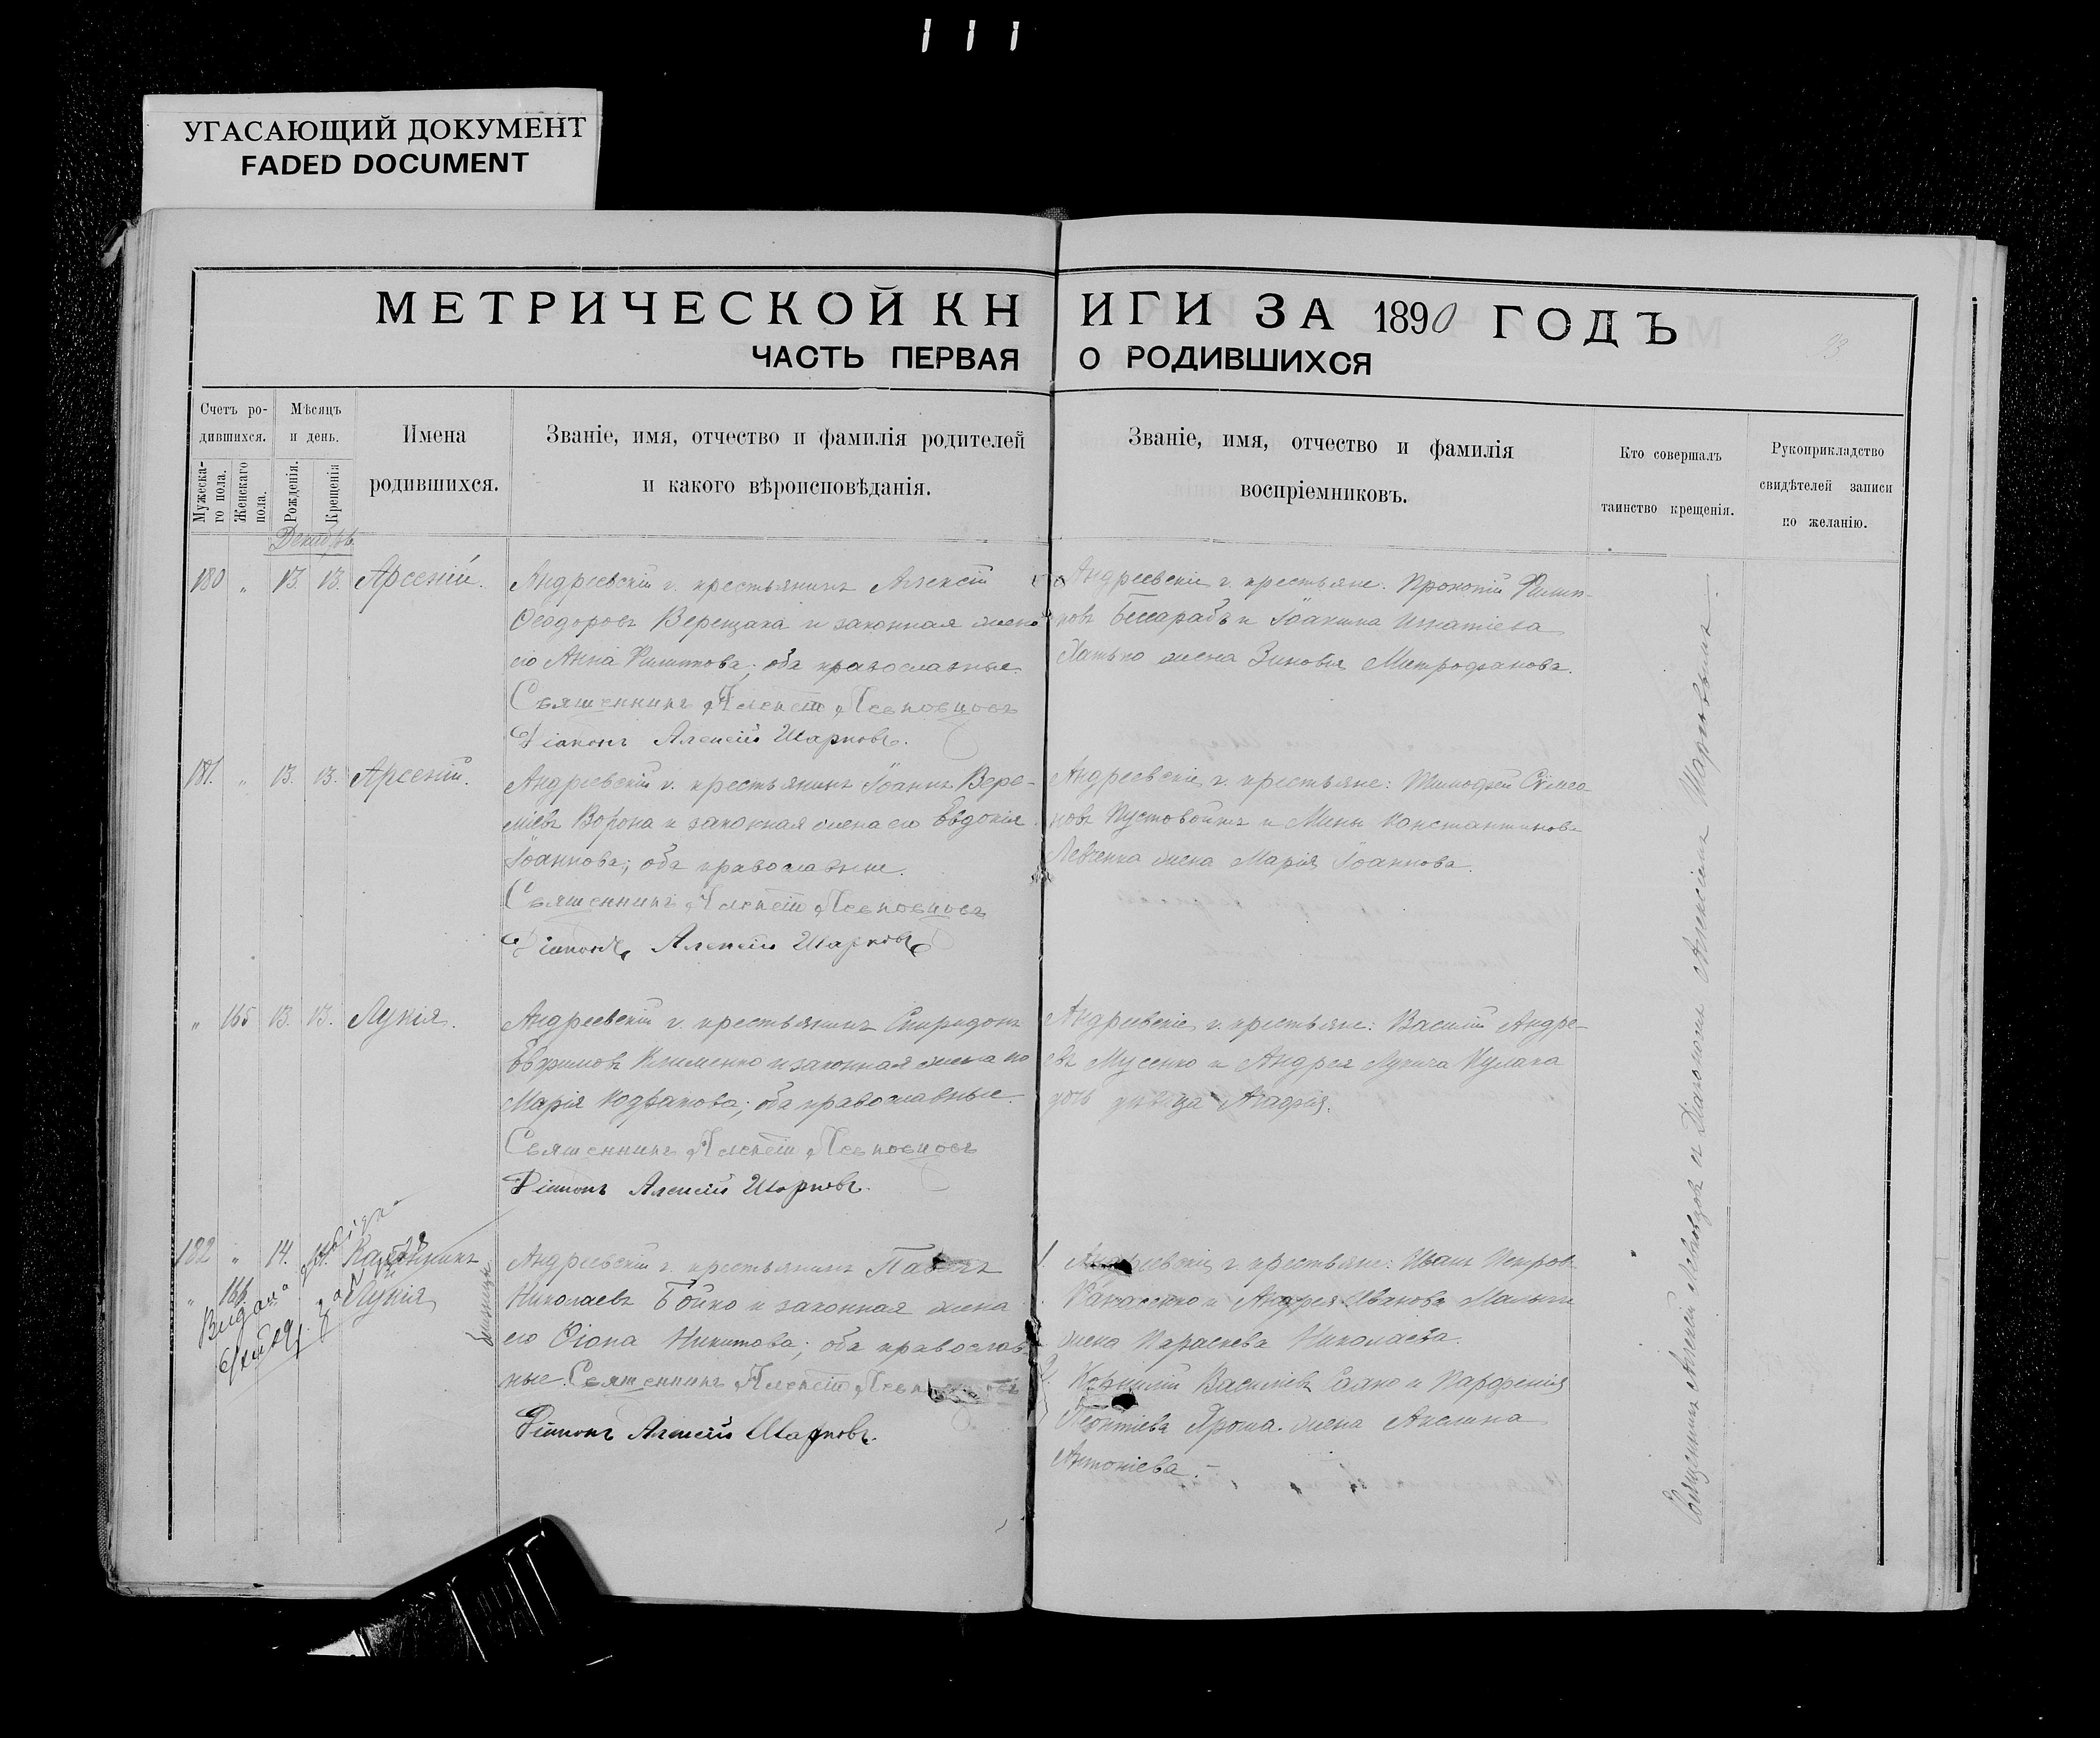 УГАСАЮЩИЙ ДОКУМЕНТ
FADED DOCUMENT
МЕТРИЧЕСКОЙ КНИГИ ЗА 1890 ГОДЪ
ЧАСТЬ ПЕРВАЯ О РОДИВШИХСЯ
Счетъ ро-
дившихся.
Мужеска-
го пола.
Женскаго
пола.
Мѣсяцъ
и день.
Рожденія.
Крещенія
Имена
родившихся.
Званіе, имя, отчество и фамилія родителей
и какого вѣроисповѣданія.
Званіе, имя, отчество и фамилія
воспріемниковъ.
Кто совершалъ
таинство крещенія.
Рукоприкладство
свидѣтелей записи
по желанію.
Декабрь
180 " 13. 13. Арсеній.
Андреевскій г. крестьянинъ Алексій
Ѳеодоровъ Верещака и законная жена
его Анна Филиппова; оба православные.
Священникъ Алексій Левковцовъ
Діаконъ Алексій Шарковъ.
Андреевскіе г. крестьяне: Прокопій Филип-
повъ Бессарабъ и Іоакима Игнатіева
жена Зиновія Митрофанова.
181. " 13. 13. Арсеній.
Андреевскій г. крестьянинъ Іоаннъ Вере-
міевъ Ворона и законная жена его Евдокія
Іоаннова; оба православные.
Священникъ Алексій Левковцовъ
Діаконъ Алексій Шарковъ
Андреевскіе г. крестьяне: Тимофей Сѵмео-
новъ Пустовойтъ и Мины Константинова
Левченка жена Марія Іоаннова.
" 165 13. 13. Лукія.
Андреевскій г. крестьянинъ Спиридонъ
Евфимовъ Клименко и законная жена его
Марія; оба православные.
Священникъ Алексій Левковцовъ
Діаконъ Алексій Шарковъ.
Андреевскіе г. крестьяне: Василій Андре-
евъ Мусенко и Андрея Лукича Кулака
дочь дѣвица Агафія.
182 " 14. Каллиникъ
" 166. Лукія
близнецы
Андреевскій г. крестьянинъ Павелъ
Николаевъ Бойко и законная жена
его Никитова; оба православ-
ные. Священникъ Алексій Левковцовъ
Діаконъ Алексій Шарковъ.
1. Андреевскіе г. крестьяне: Иванъ Петровъ
и Андрея Иванова
жена Параскева Николаева.
2. Корнилій Василіевъ и Парфенія
Леонтіева Яроша жена Акелина
Антоніева.
Священникъ Алексій Левковцовъ и Діакономъ Алексіемъ Шарковымъ.